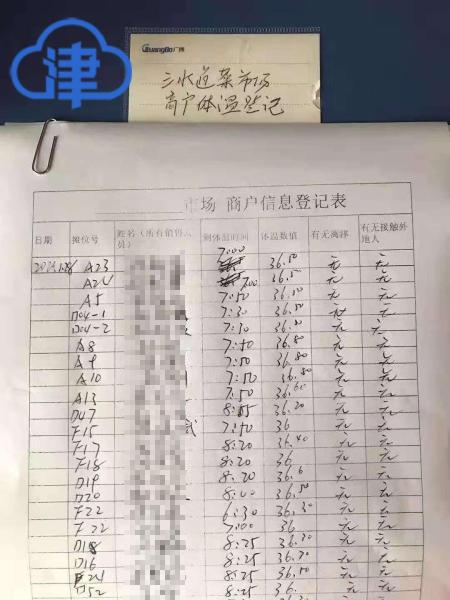 津
GuangBo广博
三水道菜市场
商户体温登记
市场 商户信息登记表
日期 摊位号 姓名(所有销售人员) 测体温时间 体温数值 有无离津 有无接触外地人
A23 7:00 36.50 无 无
A24 7:00 36.5 无 无
A5 7:50 36.50 无 无
D04-1 7:30 无 无
D04-2 7:30 36.80 无 无
A8 7:50 36.80 无 无
A9 7:50 36.80 无 无
A10 7:50 36.80 无 无
A13 7:50 36.60 无 无
D07 8:05 36.20 无 无
F15 7:50 36 无 无
F17 8:20 36.40 无 无
F18 8:20 36 无 无
D19 8:20 36.6 无 无
D20 8:00 36.50 无 无
F22 6:30 36.30 无 无
F22 7:00 36 无 无
D18 8:25 36.30 无 无
D16 8:25 36.30 无 无
8:25 36.50 无 无
D52 8:25 36.30 无 无